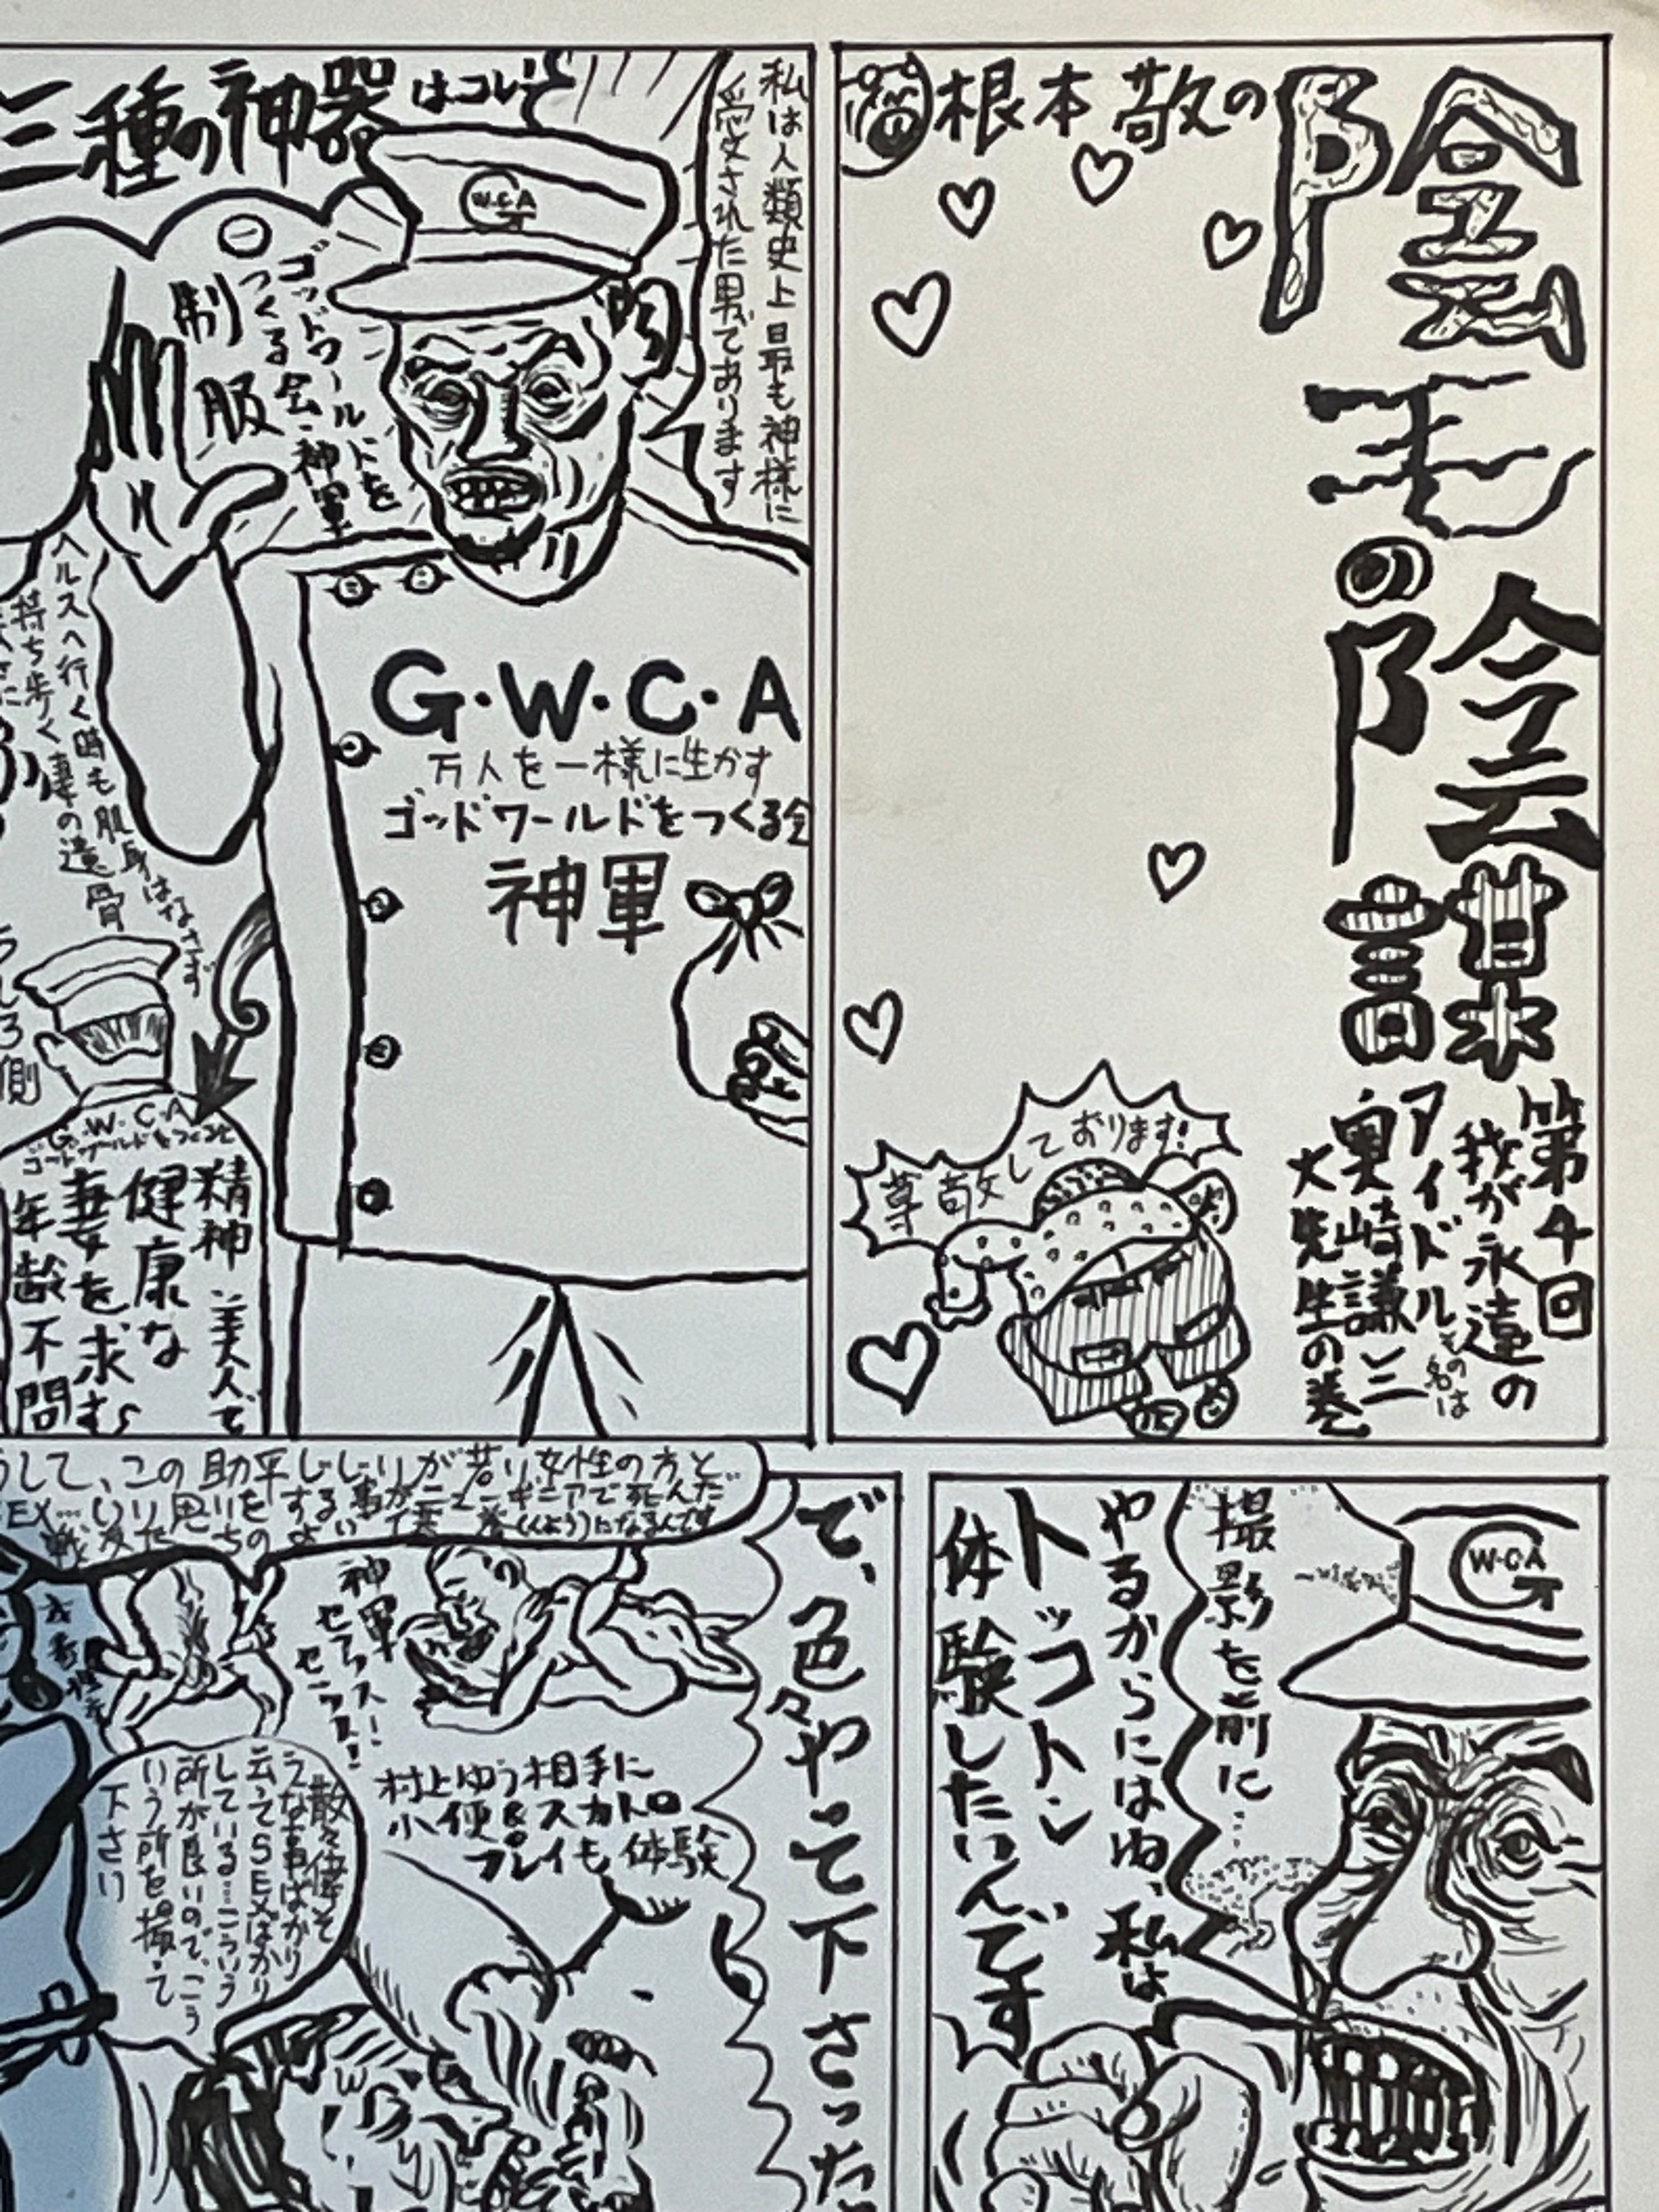 根本敬の
陰毛の陰謀
第4回
我が永遠の
アイドル
その名は
奥崎謙三
大先生の巻
尊敬しております!
私は人類史上最も神様に
愛された男であります
三種の神器はコレだ
一
ゴッドワールドを
つくる会・神軍
制服
W.C.A
G
G・W・C・A
万人を一様に生かす
ゴッドワールドをつくる会
神軍
ヘルスへ行く時も肌身はなさず
持ち歩く妻の遺骨
うしろ側
G.W.C.A
ゴッドワールドをつくる会
精神美人で
健康な
妻を求む
年齢不問
W・C・A
G
撮影を前に
やるからにはね、私は
トッコトン
体験したいんです
で、色々やって下さった
うして、この助平じじいが若い女性の方と
神軍
セックス!
村上ゆう相手に
小便&スカトロ
プレイも体験
散々偉そ
うな事ばかり
云ってSEXばかり
している…こういう
所が良いので、こう
いう所を撮って
下さい